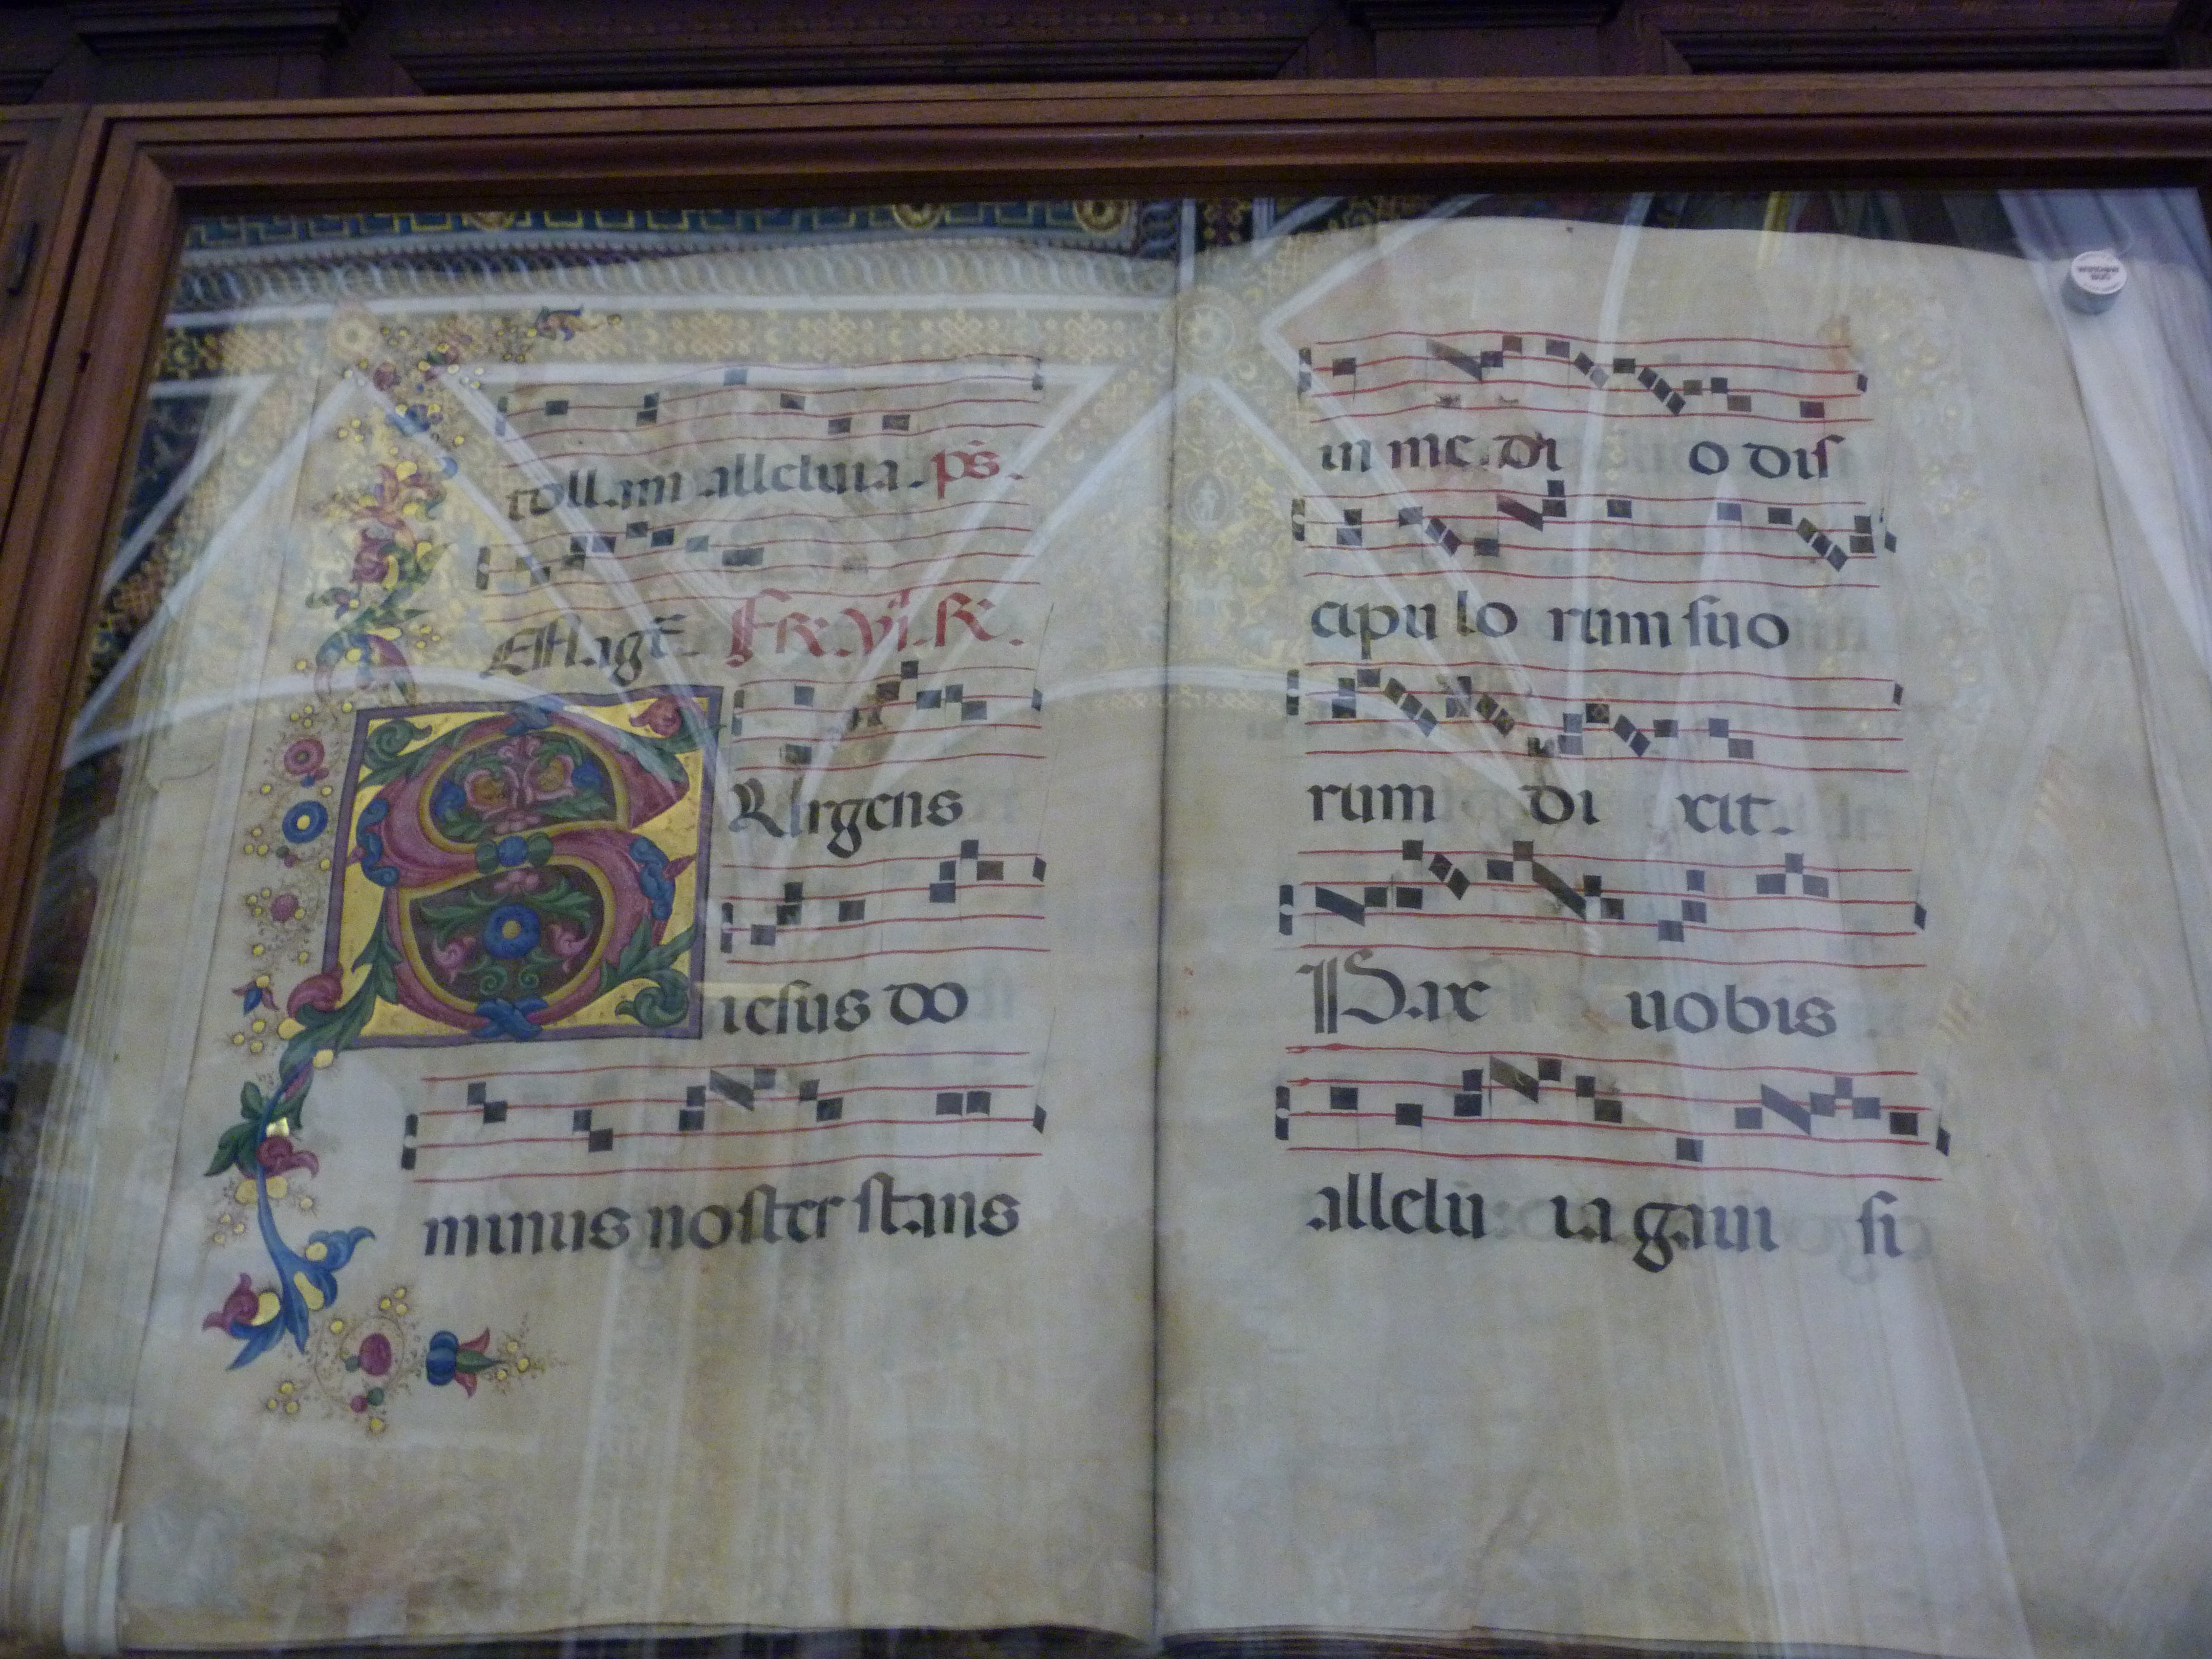 tollam alleluia. ps̄.
Magt̄. Fr. VI. R.
SUrgens
iesus do
minus noster stans
in me di o dis
cipu lo rum suo
rum di xit.
Pax uobis
allelu ia gaui si